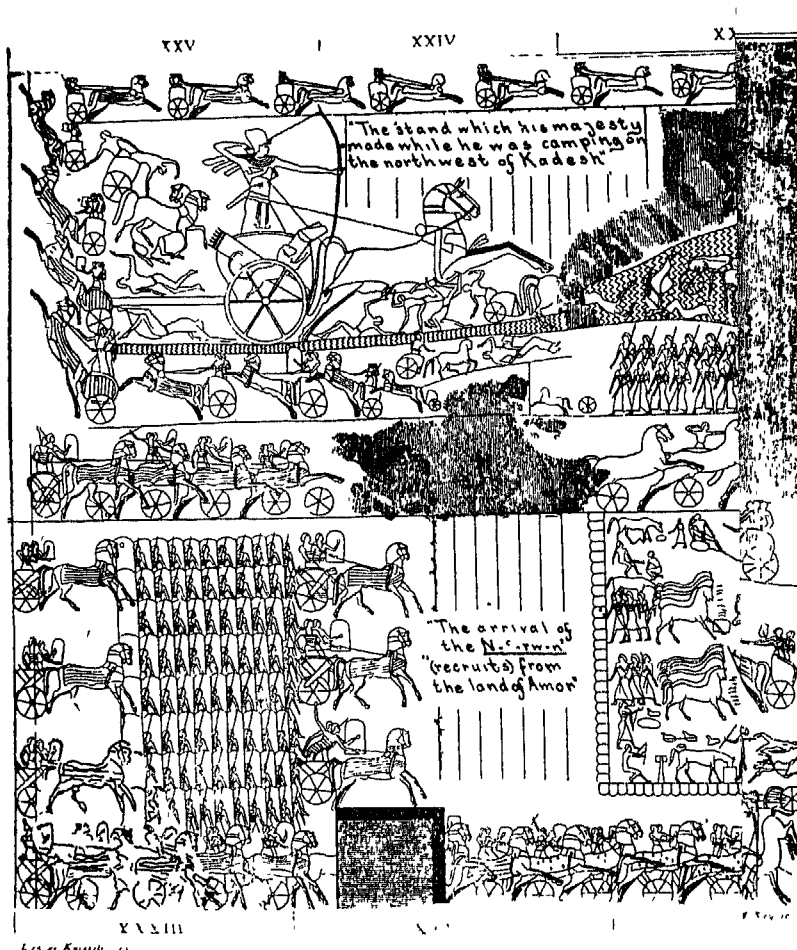 XXV
XXIV
XX
"The stand which his majesty
made while he was camping on
the northwest of Kadesh"
"The arrival of
the N-c-rw-n"
"(recruits) from
the land of Amor"
XXXIII